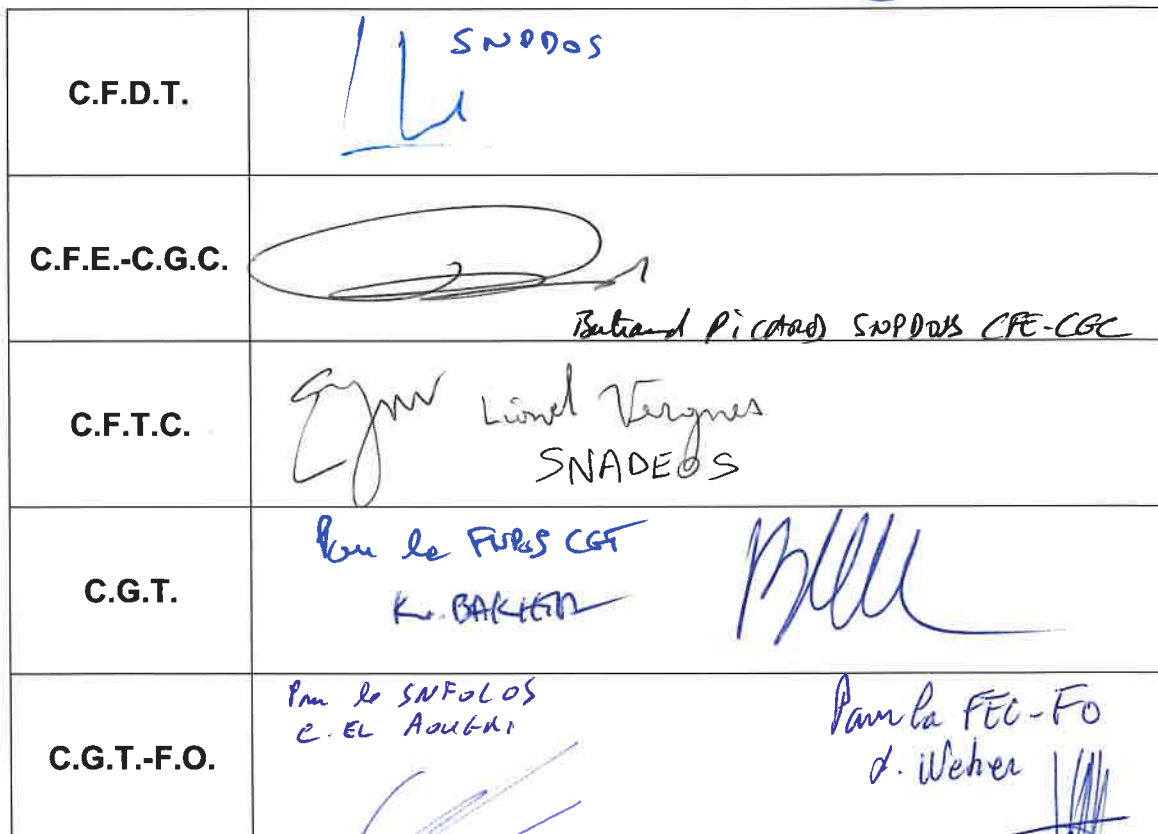 C.F.D.T.
SNPDOS
C.F.E.-C.G.C.
Bertrand PiCARD SNPDOS CFE-CGC
C.F.T.C.
Lionel Vergnes
SNADEOS
C.G.T.
Pour la FNPOS CGT
K. BAKHTA
C.G.T.-F.O.
Pour le SNFOCOS
C. EL AOUGRI
Pour la FEC-FO
Weber